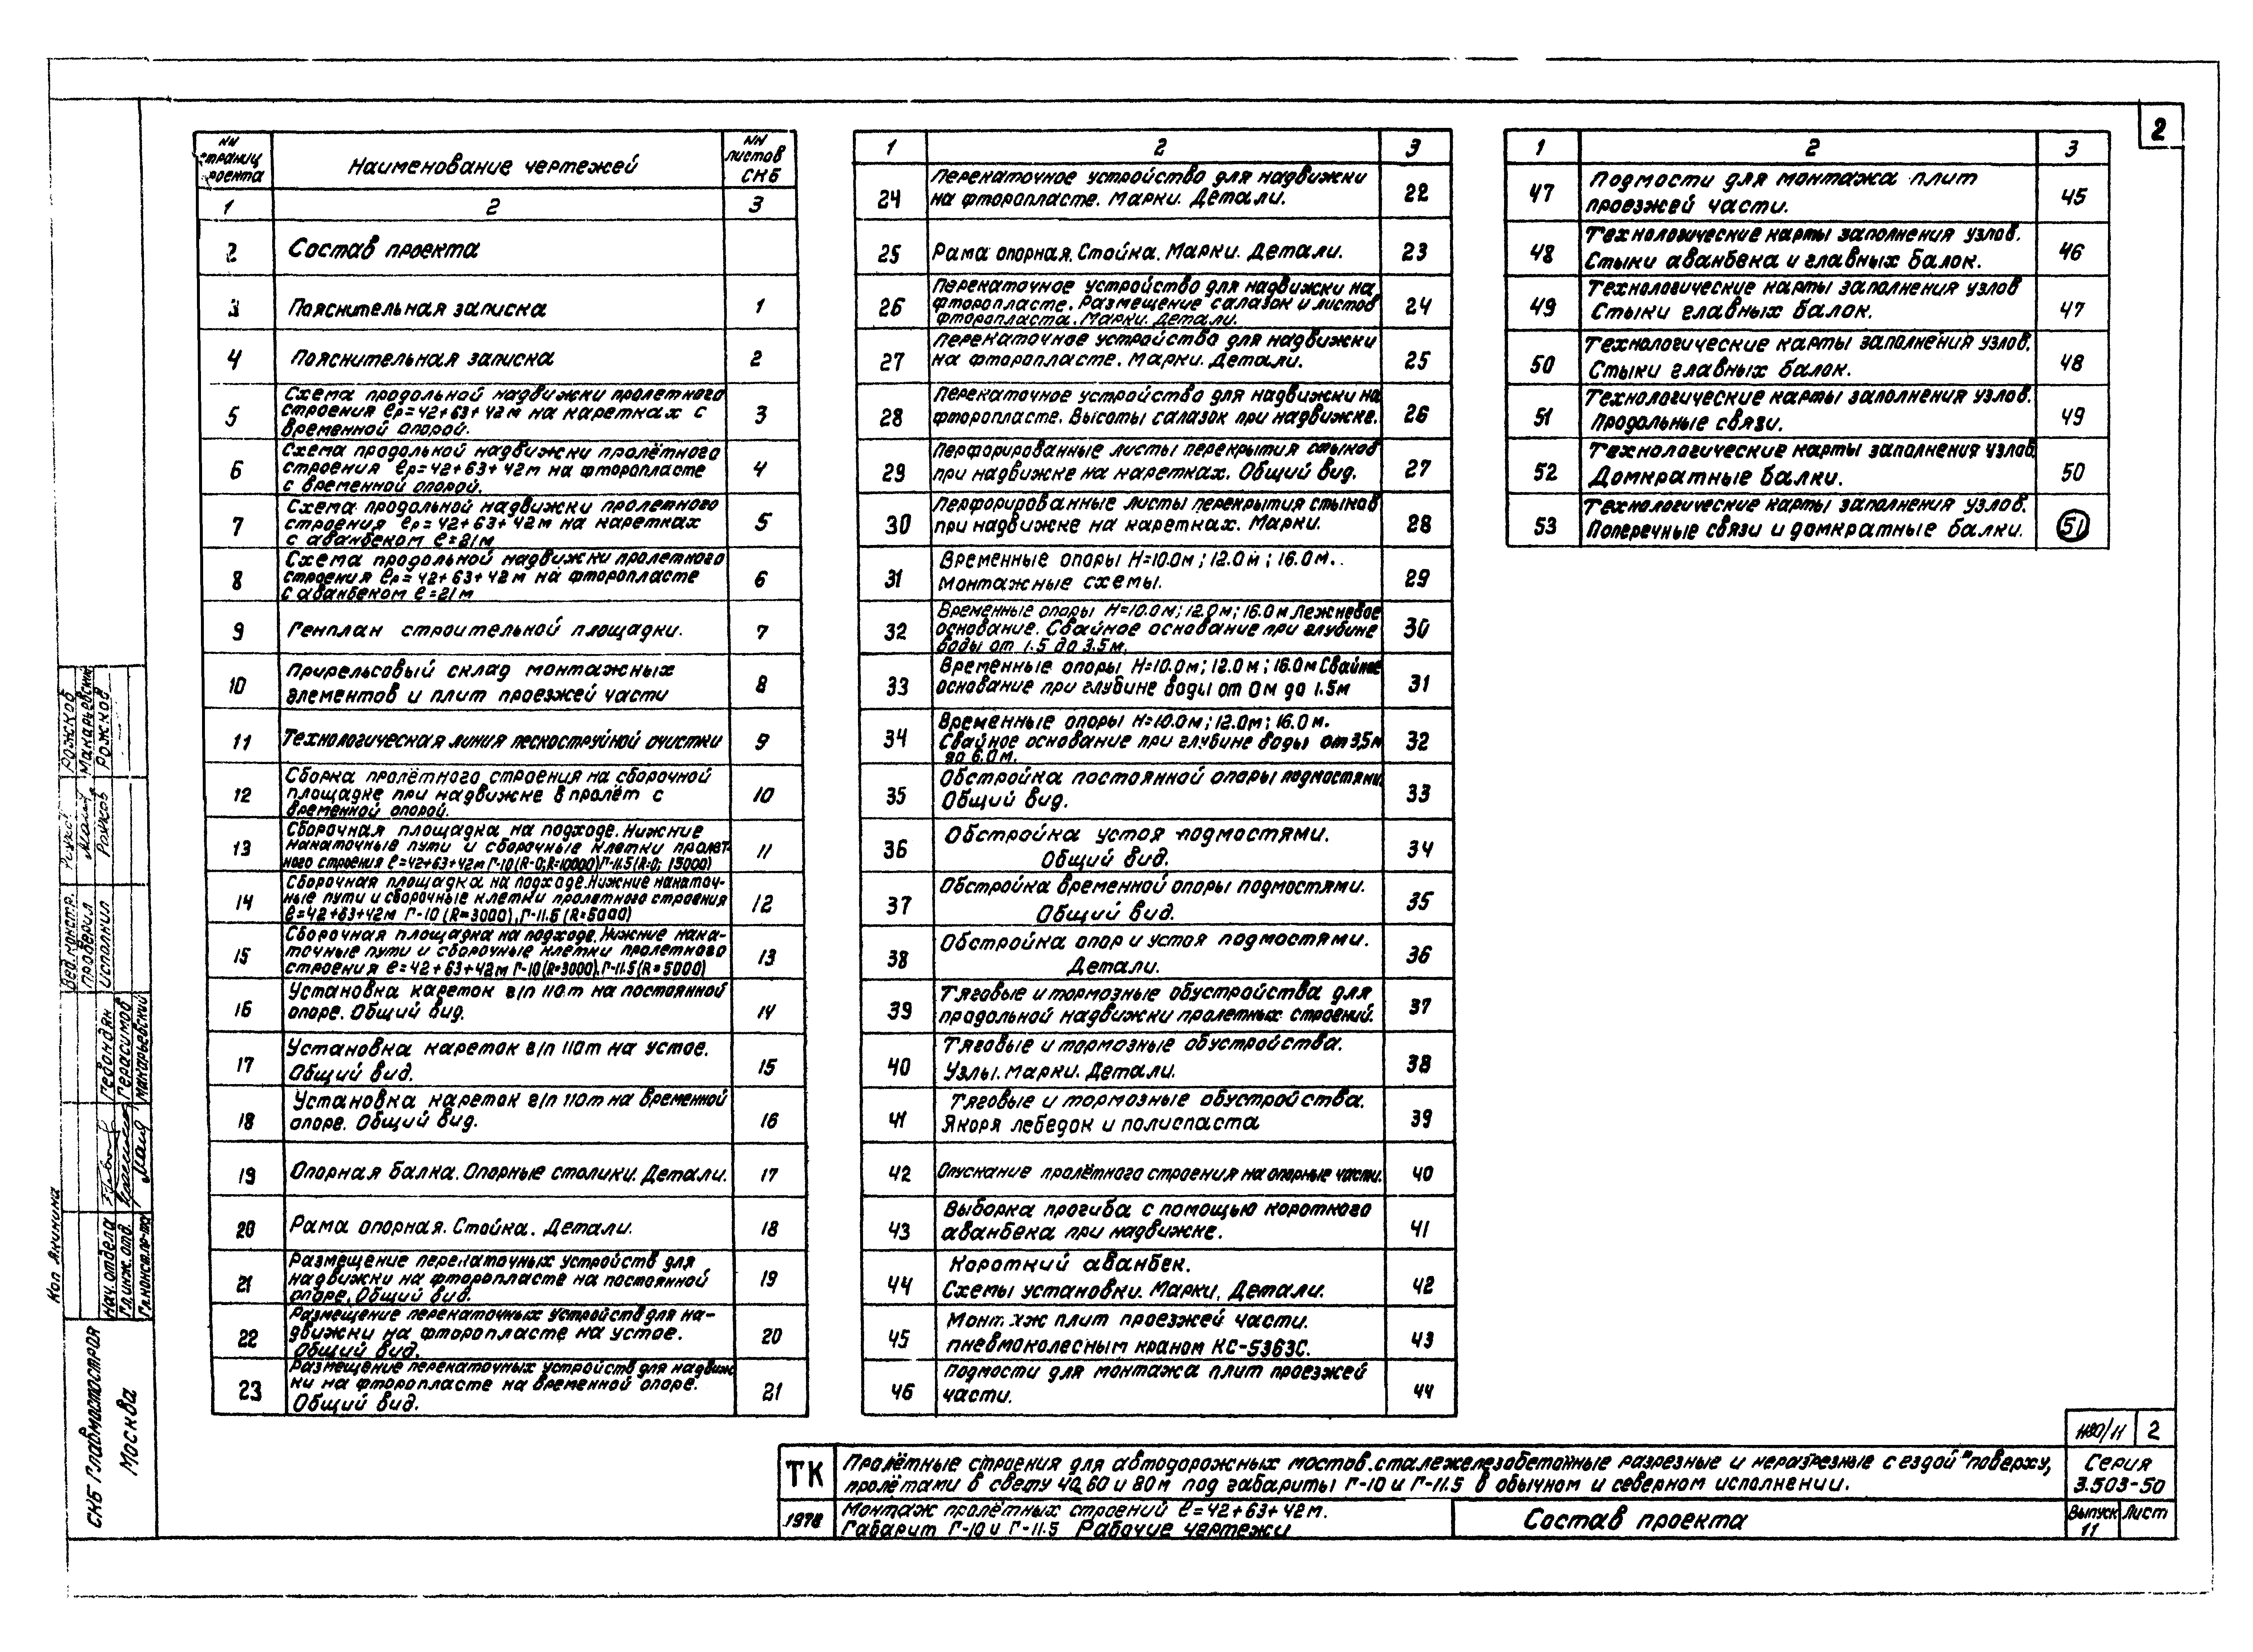 2
NN страниц проекта
Наименование чертежей
NN листов СКБ
1 2 3
2 Состав проекта
3 Пояснительная записка 1
4 Пояснительная записка 2
5 Схема продольной надвижки пролетного
строения ер=42+63+42м на каретках с
временной опорой. 3
6 Схема продольной надвижки пролётного
строения ер=42+63+42м на фторопласте
с временной опорой. 4
7 Схема продольной надвижки пролетного
строения ер=42+63+42м на каретках
с аванбеком е=21м 5
8 Схема продольной надвижки пролетного
строения ер=42+63+42м на фторопласте
с аванбеком е=21м 6
9 Генплан строительной площадки. 7
10 Прирельсовый склад монтажных
элементов и плит проезжей части 8
11 Технологическая линия пескоструйной очистки 9
12 Сборка пролётного строения на сборочной
площадке при надвижке в пролёт с
временной опорой. 10
13 Сборочная площадка на подходе. Нижние
накаточные пути и сборочные клетки пролет-
ного строения е=42+63+42м Г-10(R=0;R=10000)Г-11.5(R=0; 15000) 11
14 Сборочная площадка на подходе.Нижние накаточ-
ные пути и сборочные клетки пролетного строения
е=42+63+42м Г-10(R=3000),Г-11.5(R=5000) 12
15 Сборочная площадка на подходе. Нижние нака-
точные пути и сборочные клетки пролетного
строения е=42+63+42м Г-10(R=3000).Г-11.5(R=5000) 13
16 Установка кареток г/п 110т на постоянной
опоре. Общий вид. 14
17 Установка кареток г/п 110т на устое.
Общий вид. 15
18 Установка кареток г/п 110т на временной
опоре. Общий вид. 16
19 Опорная балка. Опорные столики. Детали. 17
20 Рама опорная. Стойка. Детали. 18
21 Размещение перекаточных устройств для
надвижки на фторопласте на постоянной
опоре. Общий вид. 19
22 Размещение перекаточных устройств для на-
движки на фторопласте на устое.
Общий вид. 20
23 Размещение перекаточных устройств для надвиж
ки на фторопласте на временной опоре.
Общий вид. 21
1 2 3
24 Перекаточное устройство для надвижки
на фторопласте. Марки. Детали. 22
25 Рама опорная. Стойка. Марки. Детали. 23
26 Перекаточное устройство для надвижки на
фторопласте. Размещение салазок и листов
фторопласта. Марки. Детали. 24
27 Перекаточное устройство для надвижки
на фторопласте. Марки. Детали. 25
28 Перекаточное устройство для надвижки на
фторопласте. Высоты салазок при надвижке. 26
29 Перфорированные листы перекрытия стыков
при надвижке на каретках. Общий вид. 27
30 Перфорированные листы перекрытия стыков
при надвижке на каретках. Марки. 28
31 Временные опоры Н=10.0м; 12.0м; 16.0м.
Монтажные схемы. 29
32 Временные опоры Н=10.0м; 12.0м; 16.0м Лежневое
основание. Свайное основание при глубине
воды от 1.5 до 3.5м. 30
33 Временные опоры Н=10.0м; 12.0м; 16.0м Свайное
основание при глубине воды от 0м до 1.5м 31
34 Временные опоры Н=10.0м; 12.0м; 16.0м.
Свайное основание при глубине воды от 3,5м
до 6.0м. 32
35 Обстройка постоянной опоры подмостями.
Общий вид. 33
36 Обстройка устоя подмостями.
Общий вид. 34
37 Обстройка временной опоры подмостями.
Общий вид. 35
38 Обстройка опор и устоя подмостями.
Детали. 36
39 Тяговые и тормозные обустройства для
продольной надвижки пролетных строений. 37
40 Тяговые и тормозные обустройства.
Узлы. Марки. Детали. 38
41 Тяговые и тормозные обустройства.
Якоря лебедок и полиспаста 39
42 Опускание пролётного строения на опорные части. 40
43 Выборка прогиба с помощью короткого
аванбека при надвижке. 41
44 Короткий аванбек.
Схемы установки. Марки. Детали. 42
45 Монтаж плит проезжей части.
пневмоколесным краном КС-5363С. 43
46 Подмости для монтажа плит проезжей
части. 44
1 2 3
47 Подмости для монтажа плит
проезжей части. 45
48 Технологические карты заполнения узлов.
Стыки аванбека и главных балок. 46
49 Технологические карты заполнения узлов
Стыки главных балок. 47
50 Технологические карты заполнения узлов.
Стыки главных балок. 48
51 Технологические карты заполнения узлов.
Продольные связи. 49
52 Технологические карты заполнения узлов.
Домкратные балки. 50
53 Технологические карты заполнения узлов.
Поперечные связи и домкратные балки. 51
Вед.констр. Рожков
проверил Макарьевский
исполнил Рожков Рожков
Нач.отдела Гевондян
Гл.инж.отд. Герасимов
Гл.конст.пр-та Макарьевский
Коп Якинина
СКБ Главмостостроя
Москва
1180/11 2
ТК Пролётные строения для автодорожных мостов.сталежелезобетонные разрезные и неразрезные с ездой поверху,
пролётами в свету 40,60 и 80м под габариты Г-10 и Г-11.5 в обычном и северном исполнении.
Серия
3.503-50
1978 Монтаж пролётных строений е=42+63+42м.
Габарит Г-10 и Г-11.5 Рабочие чертежи
Состав проекта
Выпуск 11 Лист